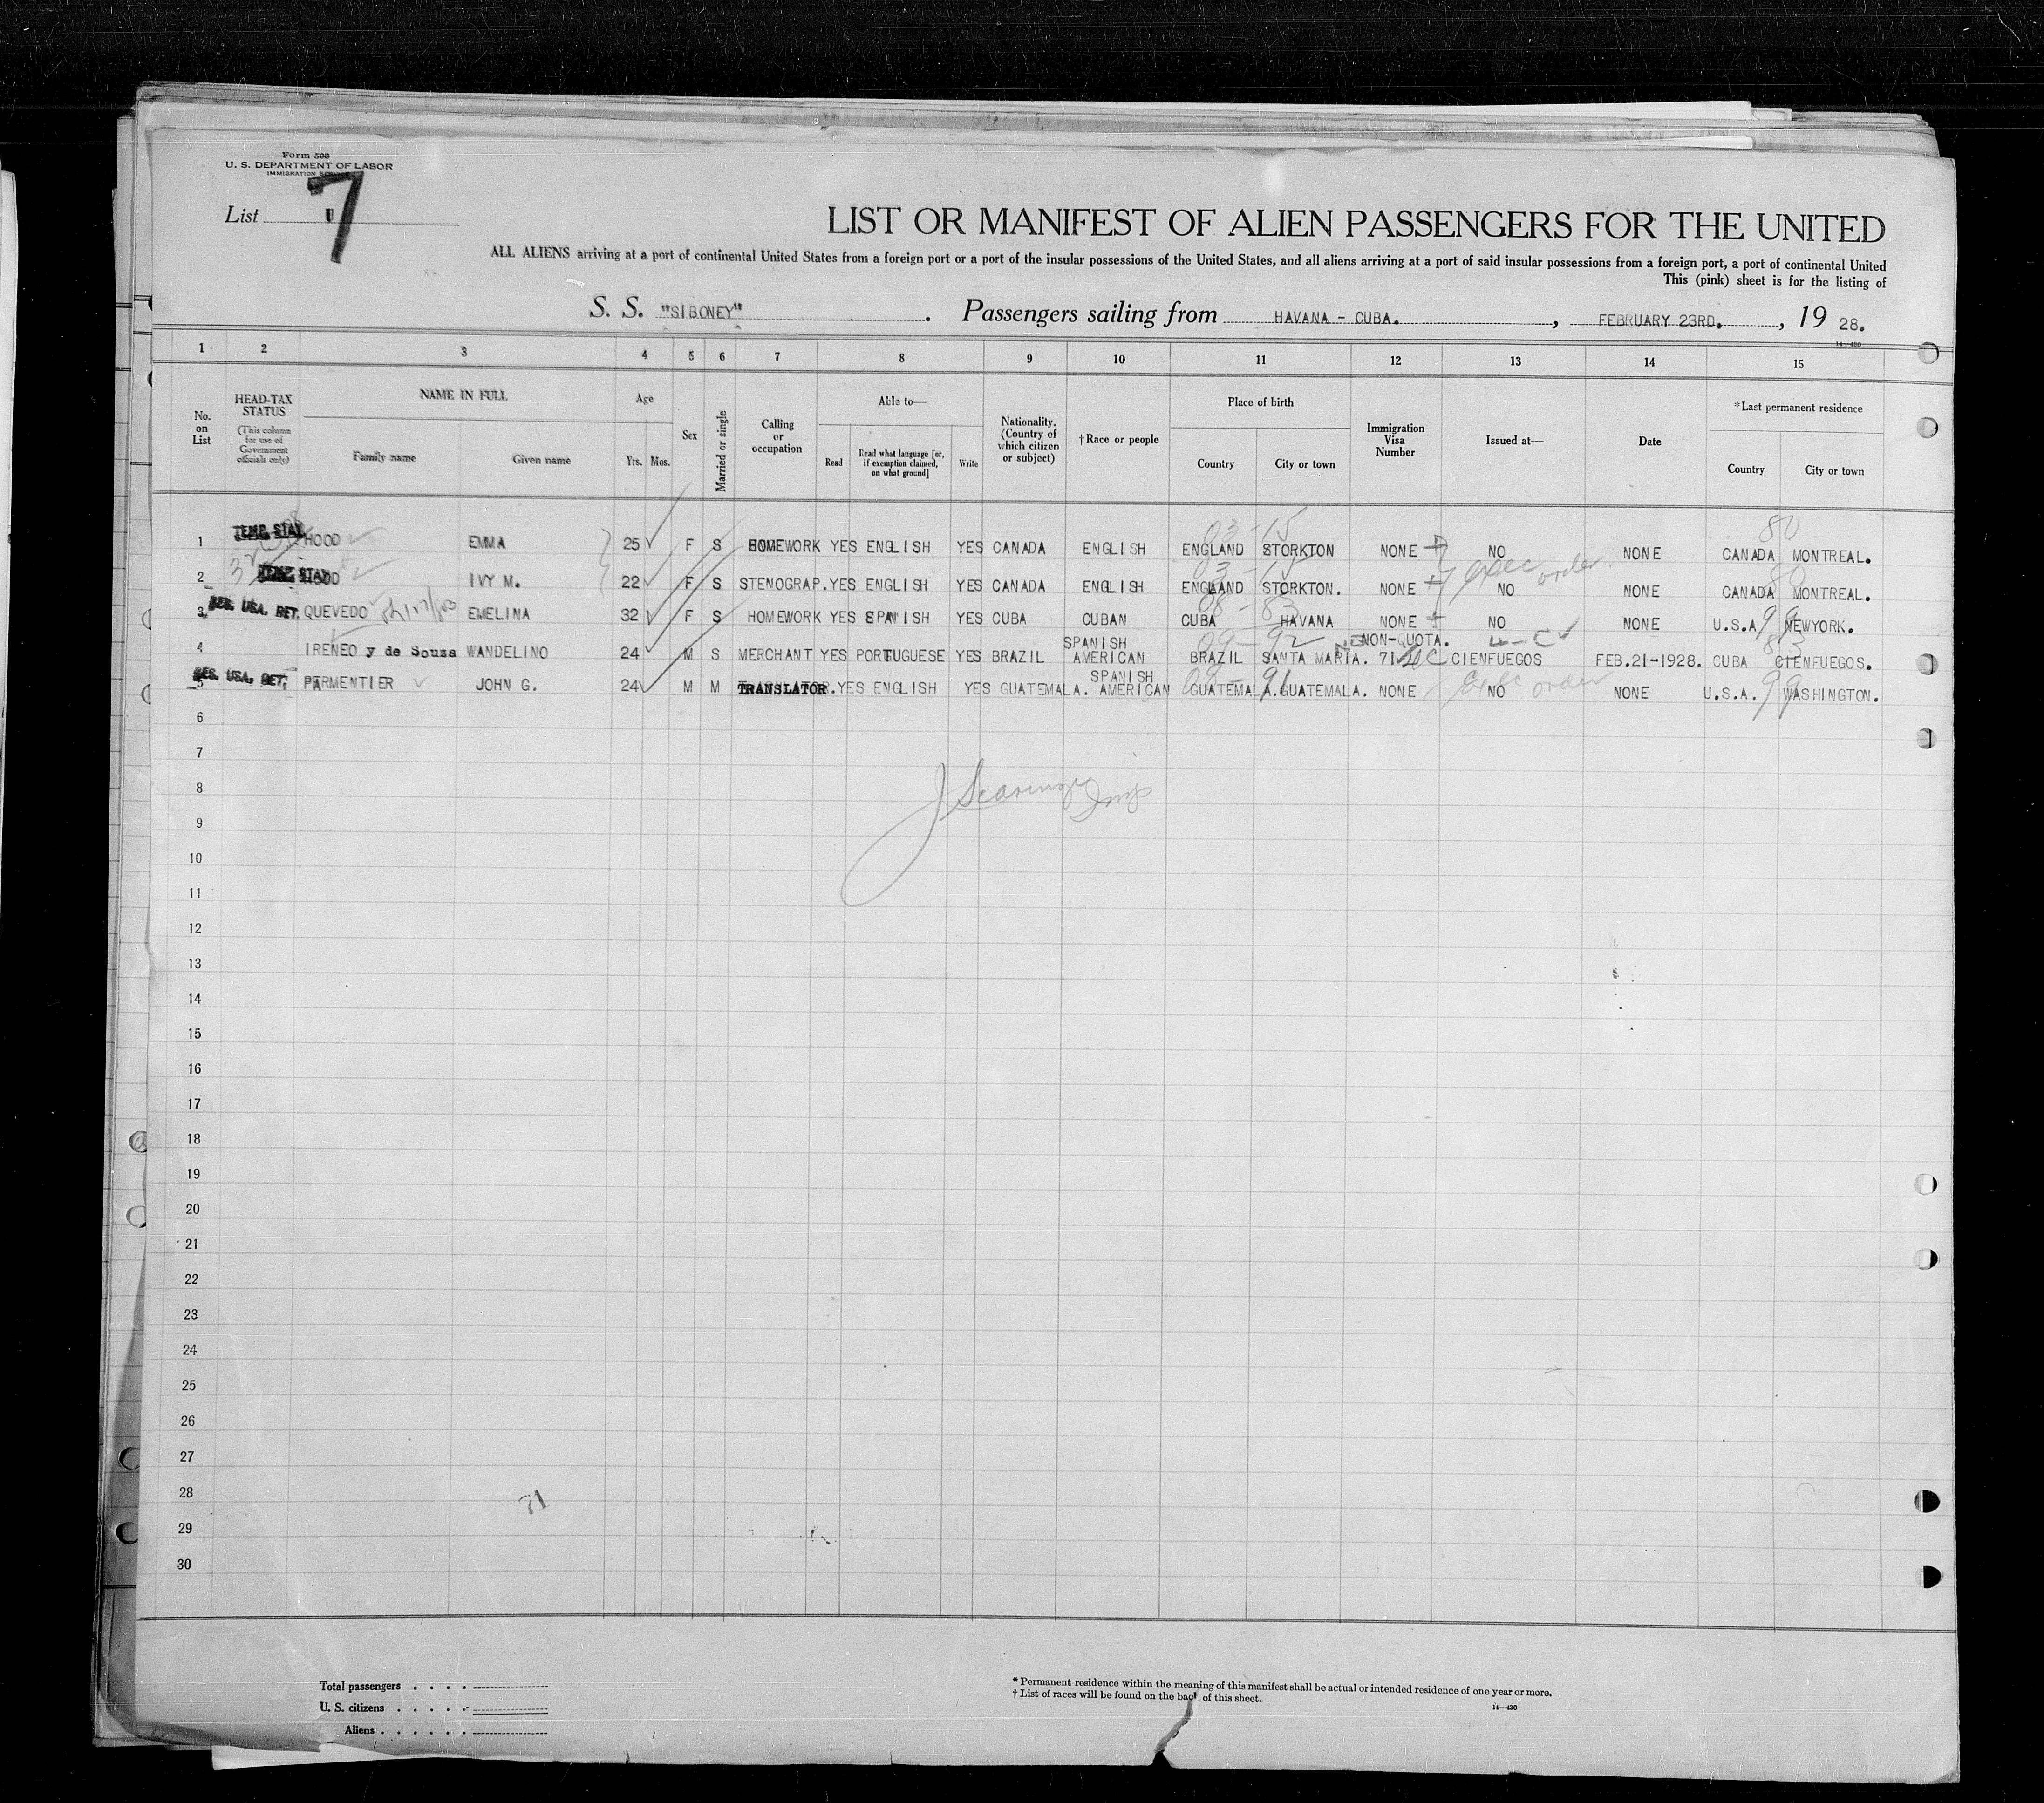 Form 500
U. S. DEPARTMENT OF LABOR
IMMIGRATION SERVICE
List 7
LIST OR MANIFEST OF ALIEN PASSENGERS FOR THE UNITED
ALL ALIENS arriving at a port of continental United States from a foreign port or a port of the insular possessions of the United States, and all aliens arriving at a port of said insular possessions from a foreign port, a port of continental United
This (pink) sheet is for the listing of
S. S. "SIBONEY" . Passengers sailing from HAVANA - CUBA. , FEBRUARY 23RD. , 19 28.
14—420
1 2 3 4 5 6 7 8 9 10 11 12 13 14 15
No. on List
HEAD-TAX STATUS
(This column for use of Government officials only)
NAME IN FULL
Family name Given name
Age
Yrs. Mos.
Sex
Married or single
Calling or occupation
Able to—
Read
Read what language [or, if exemption claimed, on what ground]
Write
Nationality. (Country of which citizen or subject)
† Race or people
Place of birth
Country City or town
Immigration Visa Number
Issued at—
Date
*Last permanent residence
Country City or town
03-15 80
1 TEMP. STAY HOOD EMMA 25 F S HOMEWORK YES ENGLISH YES CANADA ENGLISH ENGLAND STORKTON NONE NO NONE CANADA MONTREAL.
exec order
03-15 80
2 TEMP. STAY HOOD IVY M. 22 F S STENOGRAP. YES ENGLISH YES CANADA ENGLISH ENGLAND STORKTON. NONE NO NONE CANADA MONTREAL.
08-83 99
3 RES. USA. RET. QUEVEDO EMELINA 32 F S HOMEWORK YES SPANISH YES CUBA CUBAN CUBA HAVANA NONE NO NONE U.S.A NEWYORK.
SPANISH 09-92 NON-QUOTA. 4-C 83
4 IRENEO y de Sousa WANDELINO 24 M S MERCHANT YES PORTUGUESE YES BRAZIL AMERICAN BRAZIL SANTA MARIA. 71 CIENFUEGOS FEB.21-1928. CUBA CIENFUEGOS.
SPANISH 91 exec order 99
5 RES. USA. RET. PARMENTIER JOHN G. 24 M M TRANSLATOR. YES ENGLISH YES GUATEMALA. AMERICAN GUATEMALA. GUATEMALA. NONE NO NONE U.S.A. WASHINGTON.
6
7
8
9
10
11
12
13
14
15
16
17
18
19
20
21
22
23
24
25
26
27
28
71
29
30
Total passengers . . . .
U. S. citizens . . . . .
Aliens . . . . . .
* Permanent residence within the meaning of this manifest shall be actual or intended residence of one year or more.
† List of races will be found on the back of this sheet.
14—420